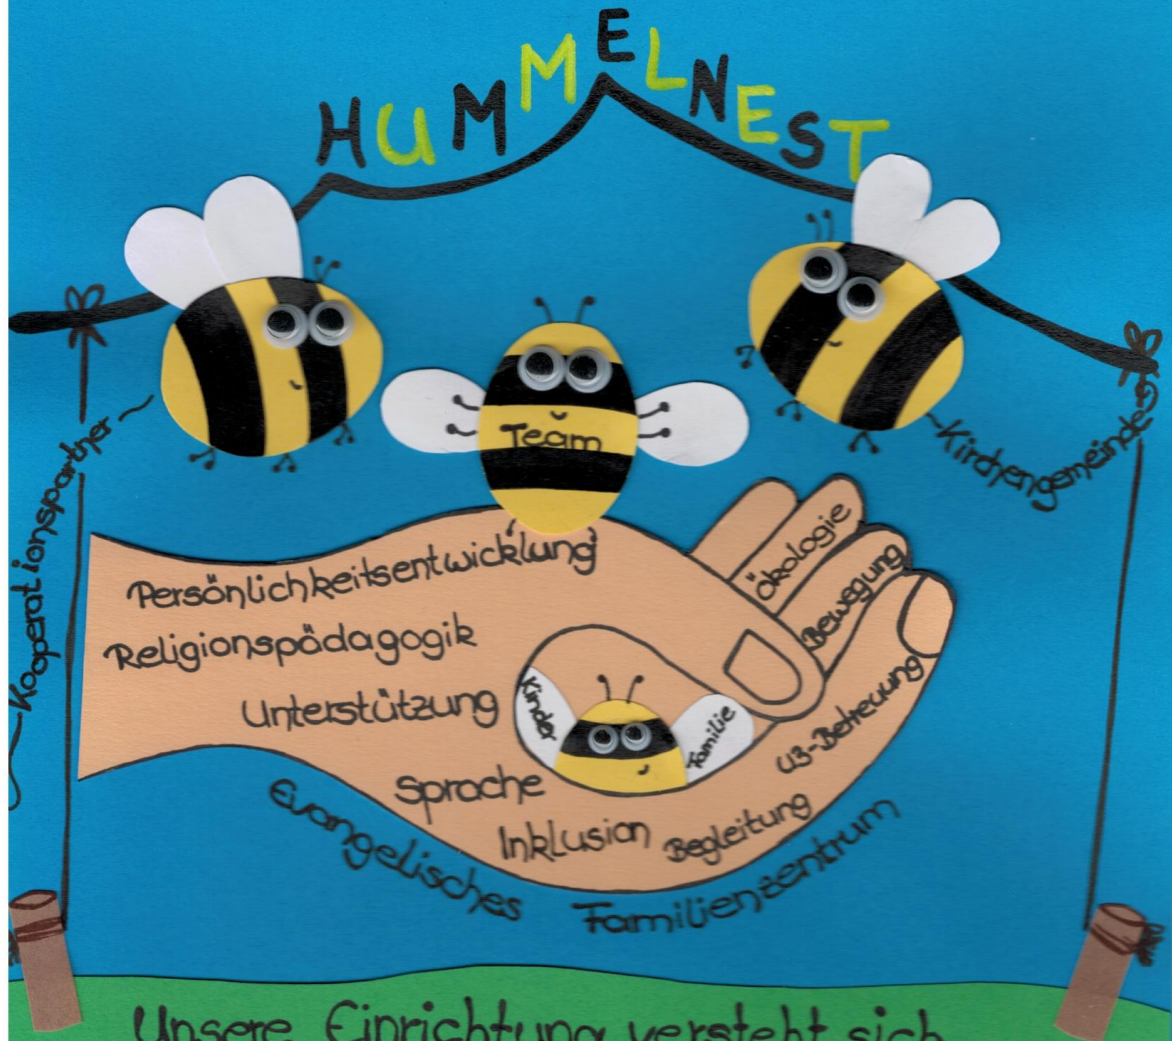 HUMMELNEST
Kooperationspartner
Team
Kirchengemeinde
Persönlichkeitsentwicklung
Religionspädagogik
Unterstützung
Sprache
Inklusion
Begleitung
U3-Betreuung
Bewegung
Ökologie
Kinder
Familie
Evangelisches Familienzentrum
Unsere Einrichtung versteht sich